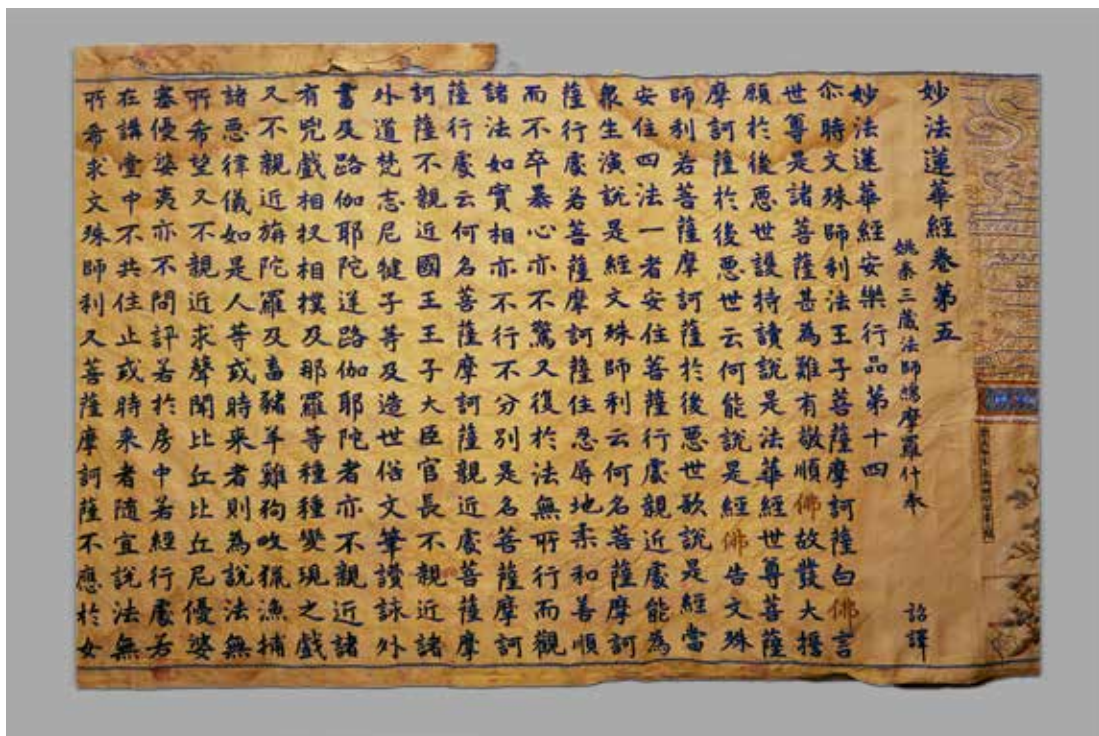 妙法蓮華經卷第五
姚秦三藏法師鳩摩羅什奉　詔譯
妙法蓮華經安樂行品第十四
尒時文殊師利法王子菩薩摩訶薩白佛言
世尊是諸菩薩甚為難有敬順佛故發大
願於後惡世護持讀說是法華經世尊菩薩
摩訶薩於後惡世云何能說是經佛告文殊
師利若菩薩摩訶薩於後惡世欲說是經當
安住四法一者安住菩薩行處親近處能為
衆生演說是經文殊師利云何名菩薩摩訶
薩行處若菩薩摩訶薩住忍辱地柔和善順
而不卒暴心亦不驚又復於法無所行而觀
諸法如實相亦不行不分別是名菩薩摩訶
薩行處云何名菩薩摩訶薩親近處菩薩摩
訶薩不親近國王王子大臣官長不親近諸
外道梵志尼犍子等及造世俗文筆讚詠外
書及路伽耶陀逆路伽耶陀者亦不親近諸
有兇戲相扠相撲及那羅等種種變現之戲
又不親近旃陀羅及畜豬羊雞狗畋獵漁捕
諸惡律儀如是人等或時來者則為說法無
所希望又不親近求聲聞比丘比丘尼優婆
塞優婆夷亦不問訊若於房中若經行處若
在講堂中不共住止或時来者隨宜說法無
所希求文殊師利又菩薩摩訶薩不應於女